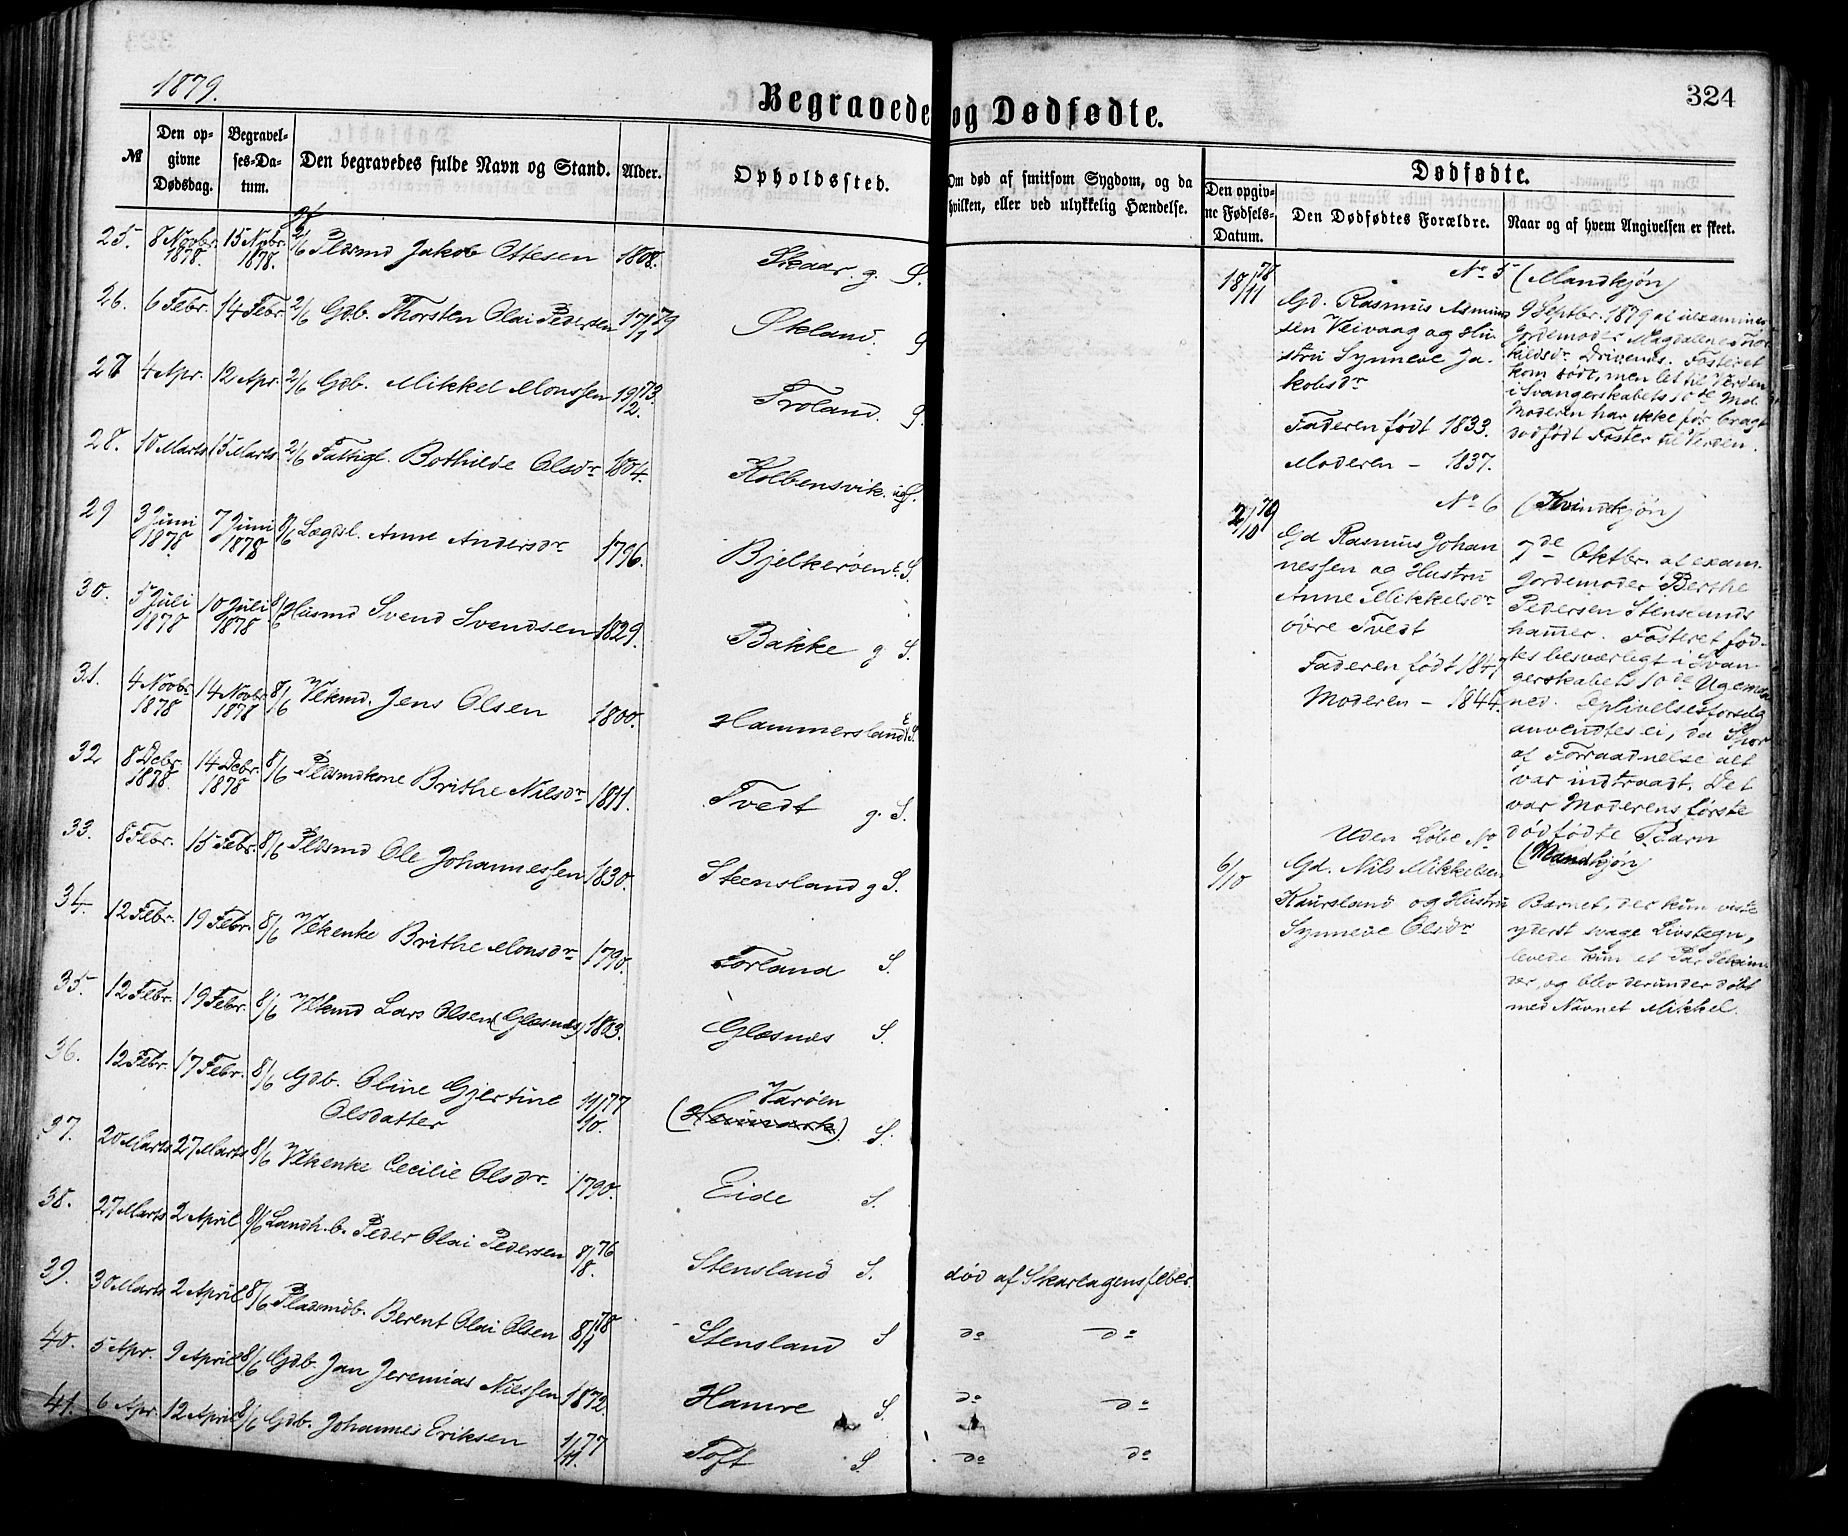 1879.
Begravede og Dødfødte.
324
№
Den opgivne Dødsdag.
Begravelses-Datum.
Den begravedes fulde Navn og Stand.
Alder.
Opholdssted.
Om død af smitsom Sygdom, og da hvilken, eller ved ulykkelig Hændelse.
Dødfødte.
Den opgivne Fødsels-Datum.
Den Dødfødtes Forældre.
Naar og af hvem Angivelsen er skeet.
25. 8 Novbr. 1878. 15 Novbr. 1878. 2/6 Pldsmd Jakob Ottesen 1808. Skaar g. S.
26. 6 Febr. 14 Febr. 2/6 Gdb. Thorsten Olai Pedersen 17/1 79 Økland. g
27 4 Apr. 12 Apr. 2/6 Gdb. Mikkel Monssen 19/12 73. Troland. g.
28. 10 Marts 15 Marts 2/6 Fattigl. Bothilde Olsdr 1804. Kolbensvik. S.
29 3 Juni 1878 7 Juni 1878 8/6 Lægdsl. Anne Andersdr 1796. Bjelkerøen S.
30. 5 Juli 1878 10 Juli 1878 8/6 Husmd Svend Svendsen 1829. Bakke g S.
31. 4 Novbr 1878 14 Novbr 1878 8/6 Vlkmd. Jens Olsen 1800. Hammersland S.
32 8 Debr. 1878. 14 Debr. 1878 8/6 Pldsmdkone Brithe Nilsdr 1811. Tvedt g. S.
33. 8 Febr. 15 Febr. 8/6 Pldsmd Ole Johannessen 1830. Steensland g S.
34. 12 Febr. 19 Febr. 8/6 Vlkenke Brithe Monsdr 1790. Forland S.
35. 12 Febr. 19 Febr. 8/6 Vlkmd Lars Olsen (Glæsnæs) 1803. Glæsnes S.
36. 12 Febr. 17 Febr. 8/6 Gdb. Oline Gjertine 11/10. 77 Varøen
Olsdatter (Heimark). S.
37. 20 Marts 27 Marts 8/6 Vlkenke Cecilie Olsdr. 1790. Eide S.
38. 27 Marts 2 April 8/6 Landh.b. Peder Olai Pedersen 8/8. 76 Stensland S. død af Skarlagensfeber.
39. 30 Marts 2 April 8/6 Pladsmdb. Berent Olai Olsen 8/1 78 Stensland S do do
40. 5 Apr. 9 April 8/6 Gdb. Jan Jeremias Nilssen 1872 Hamre S. do do
41. 6 Apr. 12 April 8/6 Gdb. Johannes Eriksen 1/11. 77 Toft S. do do
No 5 (Mandkjøn)
18/11 78
Gd. Rasmus Asmund
sen Veivaag og Hu
stru Synneve Ja-
kobsdr
Faderen født 1833.
Moderen - 1837.
9 Septbr. 1879 af uexamineret
Jordemoder Magdalene Thor
kildsdr Drivenes. Fosteret
kom dødt, men let til Verden
i Svangerskabets 10de Md.
Moderen har ikke før bragt
dødfødt Foster til Verden.
No 6 (Kvindkjøn)
2/10 79
Gd Rasmus Johan
nessen og Hustru
Anne Mikkelsdr
øvre Tvedt
Faderen født 1847
Moderen - 1844.
7de Oktbr. af exam.
Jordemoder Berthe
Pedersen Stenslands
hamer. Fosteret fød-
tes besværligt i Svan-
gerskabets 10de
Oplivelsesforsøg
anvendtes ei, da Spor
af Forraadnelse alt
var indtraadt. Det
var Moderens første
dødfødte Barn
Uden Løbe No (Mandkjøn)
6/10 Gd. Nils Mikkelsen
Kaursland og Hustru
Synneve Olsdr
Barnet, der kun viste
yderst svage Livstegn,
levede kun et Par
og blev derunder døbt
med Navnet Mikkel.